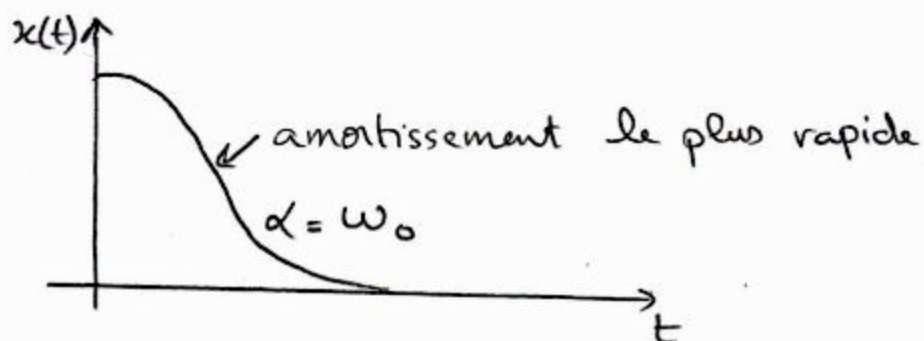 x(t)
amortissement le plus rapide
α = ω₀
t